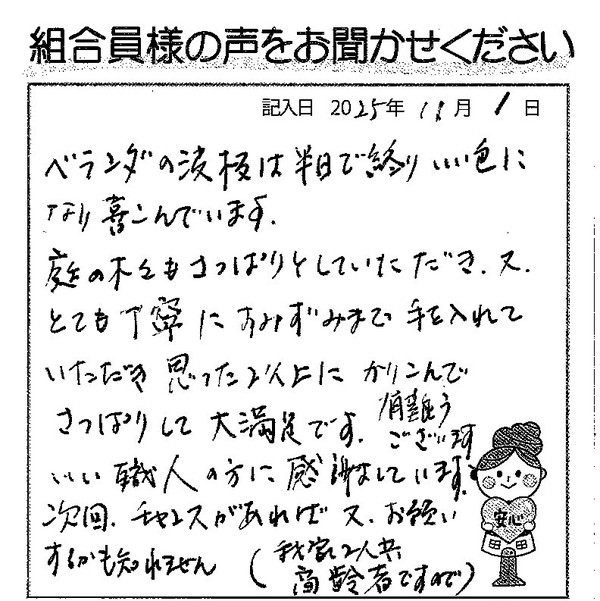 組合員様の声をお聞かせください
記入日 2025年 11月 1日
ベランダの波板は半日で終り いい色に
なり喜こんでいます。
庭の木々もさっぱりとしていただき、又、
とても丁寧にすみずみまで手を入れて
いただき 思った以上に かりこんで
さっぱりして 大満足です。有難う
ございます
いい職人の方に感謝しています。
次回、チャンスがあれば 又、お願い
するかも知れません (我家2人共
高齢者ですので)
安心